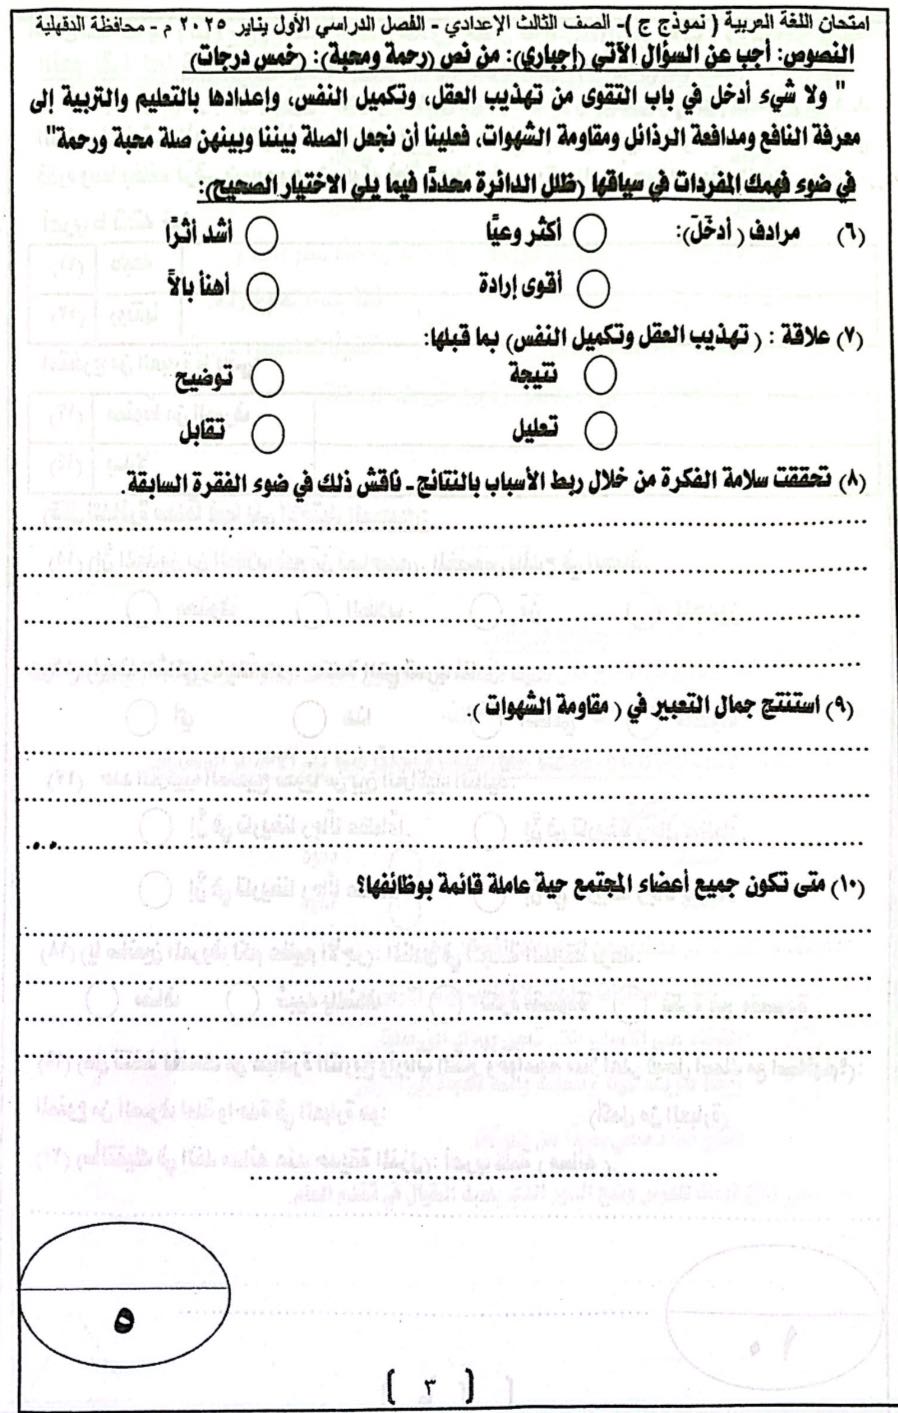 امتحان اللغة العربية ( نموذج ج )- الصف الثالث الإعدادي - الفصل الدراسي الأول يناير ٢٠٢٥ م - محافظة الدقهلية
النصوص: أجب عن السؤال الآتي (إجباري): من نص (رحمة ومحبة): (خمس درجات)
" ولا شيء أدخل في باب التقوى من تهذيب العقل، وتكميل النفس، وإعدادها بالتعليم والتربية إلى
معرفة النافع ومدافعة الرذائل ومقاومة الشهوات، فعلينا أن نجعل الصلة بيننا وبينهن صلة محبة ورحمة"
في ضوء فهمك المفردات في سياقها (ظلل الدائرة محددًا فيما يلي الاختيار الصحيح):
(٦) مرادف (أدخَلَ): أكثر وعيًا أشد أثرًا
أقوى إرادة أهنأ بالاً
(٧) علاقة : ( تهذيب العقل وتكميل النفس) بما قبلها:
نتيجة توضيح
تعليل تقابل
(٨) تحققت سلامة الفكرة من خلال ربط الأسباب بالنتائج - ناقش ذلك في ضوء الفقرة السابقة.
(٩) استنتج جمال التعبير في ( مقاومة الشهوات ).
(١٠) متى تكون جميع أعضاء المجتمع حية عاملة قائمة بوظائفها؟
٥
[ ٣ ]